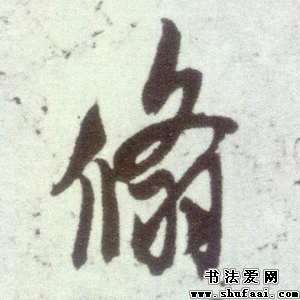 翛
书法爱网
www.shufaai.com